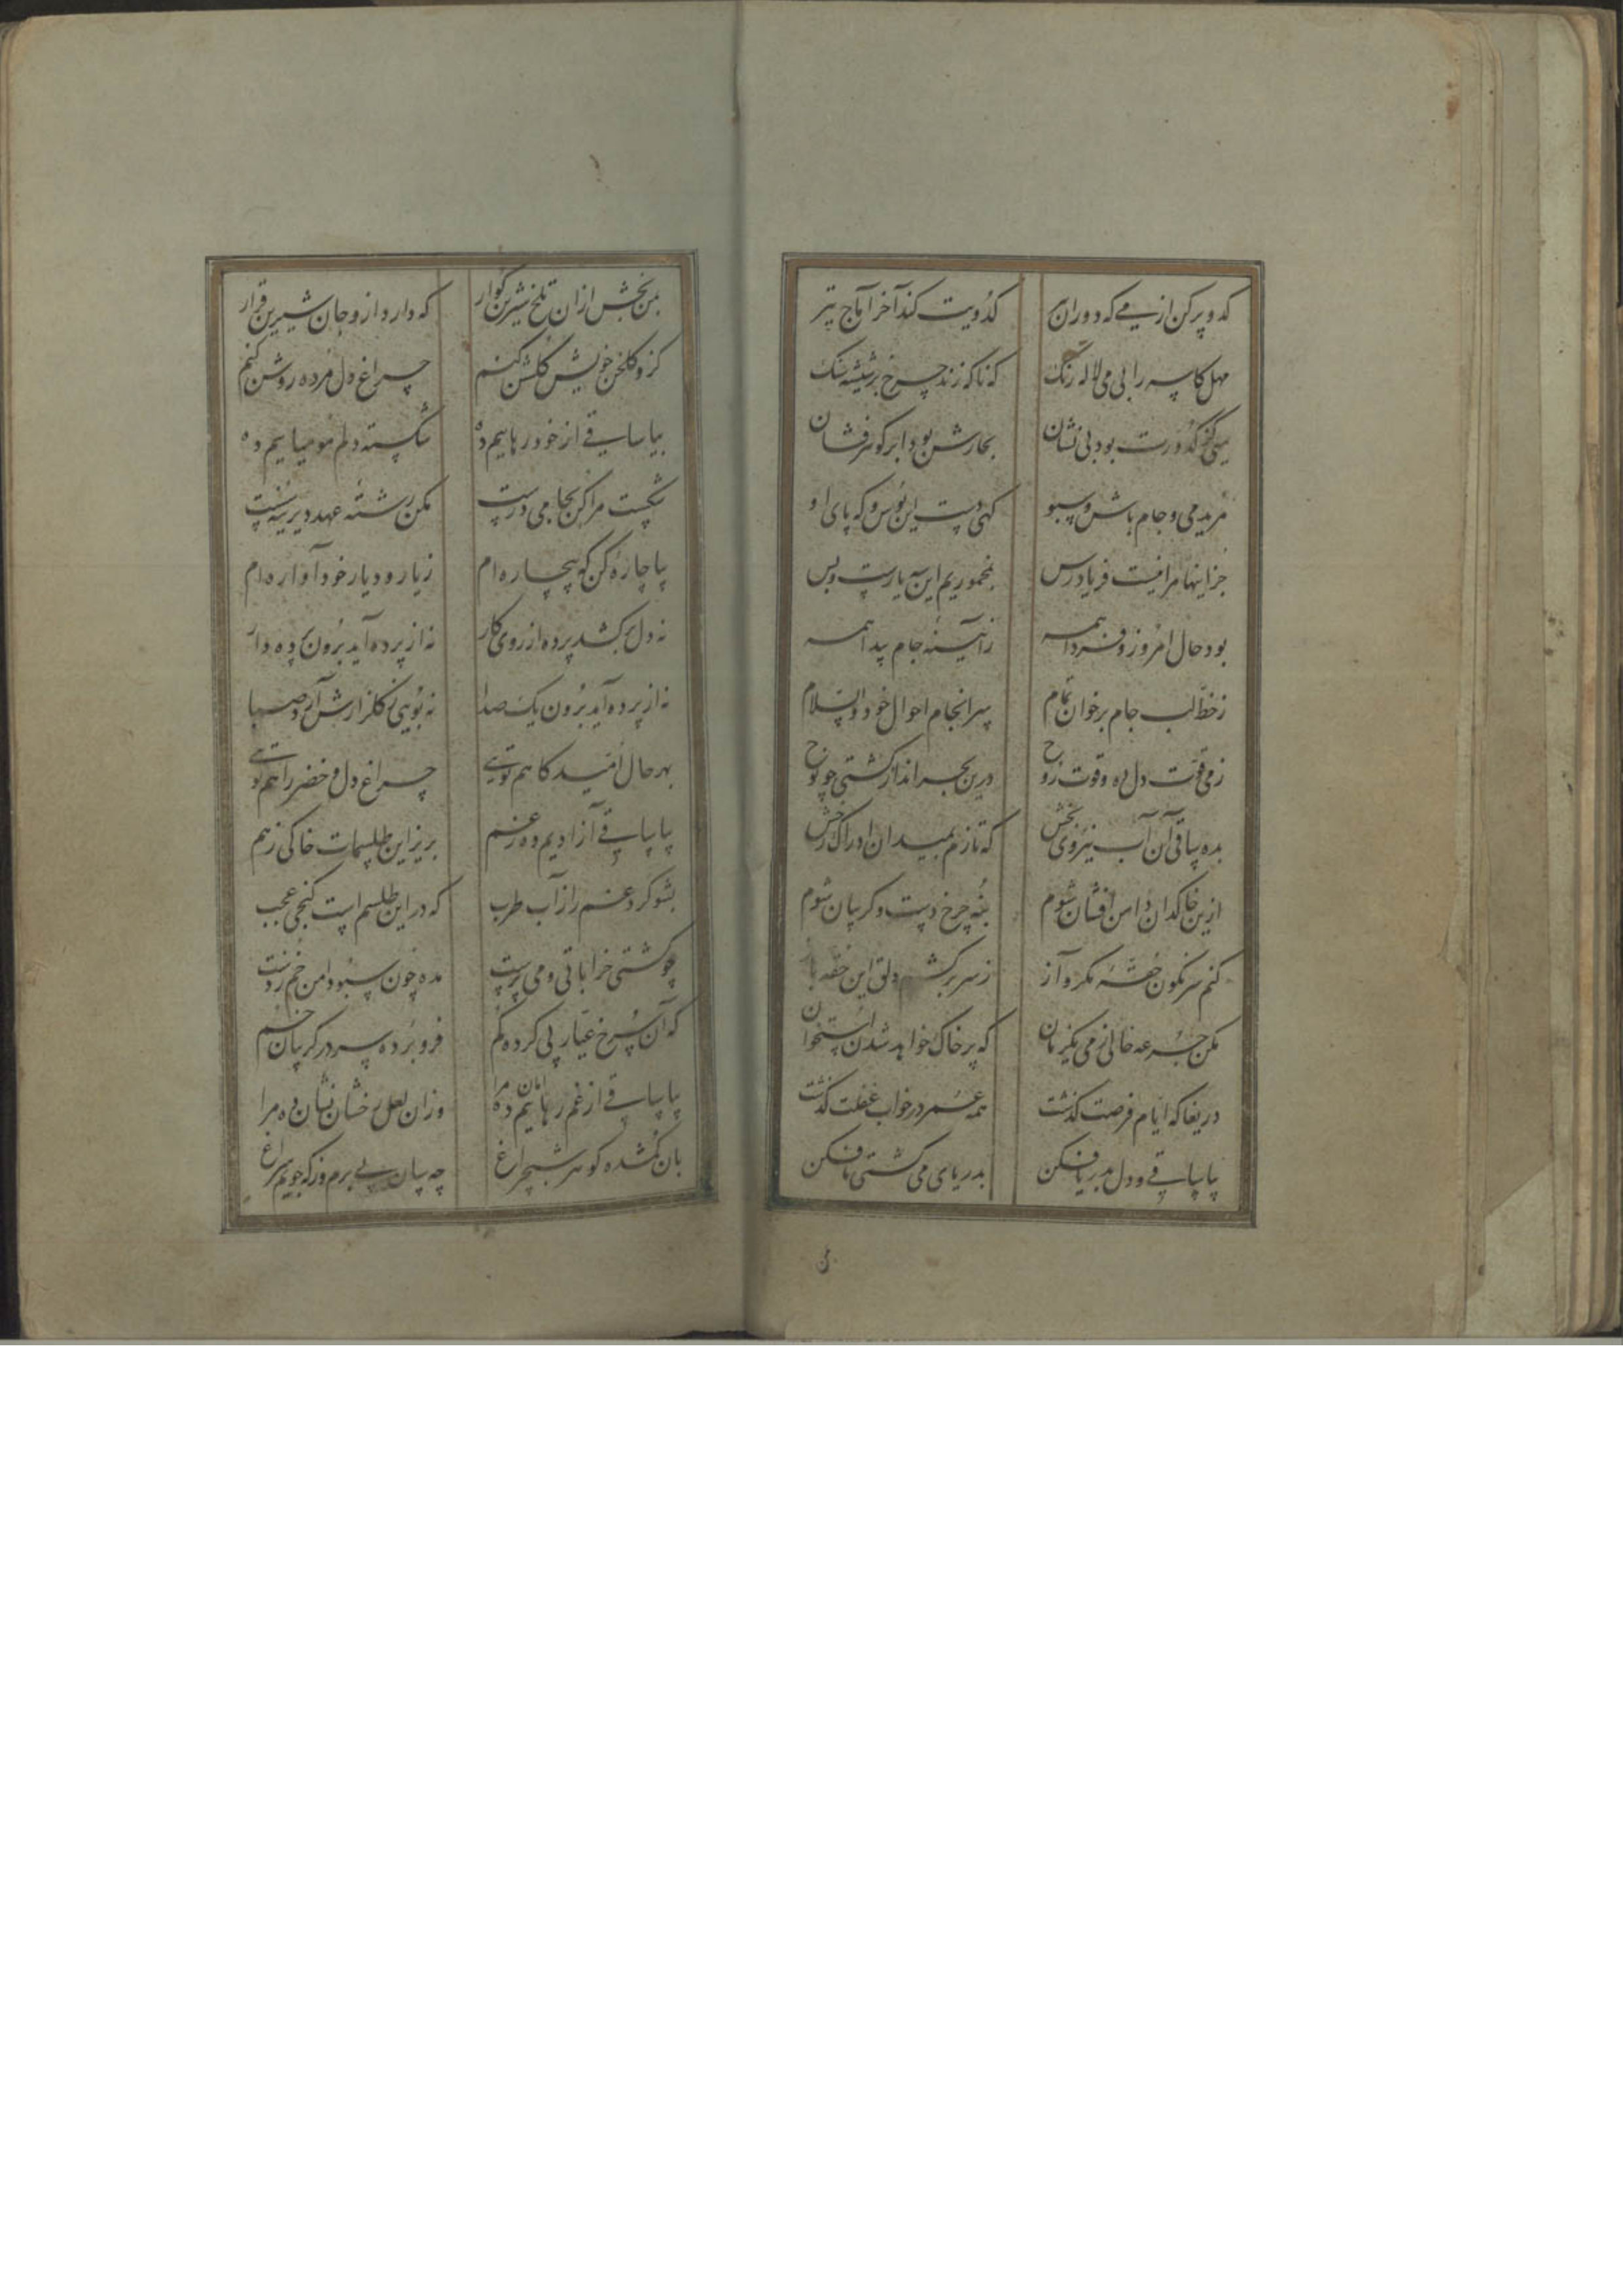 کدو پر کن از می که دوران
کدویت کند آخر آماج تیر
مهل کاسه را بی می لاله رنگ
که ناگه زند چرخ بر شیشه سنگ
کدورت بود بی نشان
بخارش بود ابر گوهرفشان
مرید می و جام باش و سبو
کهی دست این بوس و که پای او
جز اینها مرا نیست فریادرس
بمخموریم این سه یارست و بس
بود حال امروز و فردا همه
ز آیینه جام پیدا همه
ز خط لب جام برخوان تمام
سرانجام احوال خود والسلام
ز می قوت دل ده و قوت روح
درین بحر انداز کشتی چو نوح
بده ساقی آن آب نیروی بخش
که تازم بمیدان ادراک رخش
ازین خاکدان دامن افشان شوم
بنه چرخ دست و کریبان شوم
کنم سرنکون حقه مکر و آز
ز سر برکشم دلق این حقه باز
مکن جرعه خالی ز می یکزمان
که پر خاک خواهد شدن استخوان
دریغا که ایام فرصت کذشت
همه عمر در خواب غفلت کذشت
بیا ساقی و دل بدریا فکن
بدریای می کشتی ما فکن
بمن بخش ازان تلخ شیرین کوار
که دارد ازو جان شیرین قرار
کزو کلخن خویش کلشن کنم
چراغ دل مرده روشن کنم
بیا ساقی از خود رهاییم ده
شکسته دلم مومیاییم ده
شکست مرا کن بجام می درست
مکن رشته عهد دیرینه سست
بیا چاره کن که بیچاره ام
ز یار و دیار خود آواره ام
نه دل برکشد پرده از روی کار
نه از پرده آید برون پرده دار
نه از پرده آید برون یک صدا
نه بویی ز کلزارش آرد صبا
بهر حال امید کاهم تویی
چراغ دل و خضر راهم تویی
بیا ساقی آزادیم ده ز غم
بریز این طلسمات خاکی ز هم
بشو کرد غم را ز آب طرب
که در این طلسم است کنجی عجب
چو کشتی خراباتی و می پرست
مده چون سبو دامن خم ز دست
که آن سرخ عیار پی کرده کم
فرو برده سر در کریبان خم
بیا ساقی از غم امان ده مرا
وزان لعل رخشان نشان ده مرا
بآن کمشده کوهر شبچراغ
چه سان پی برم وز که جویم سراغ